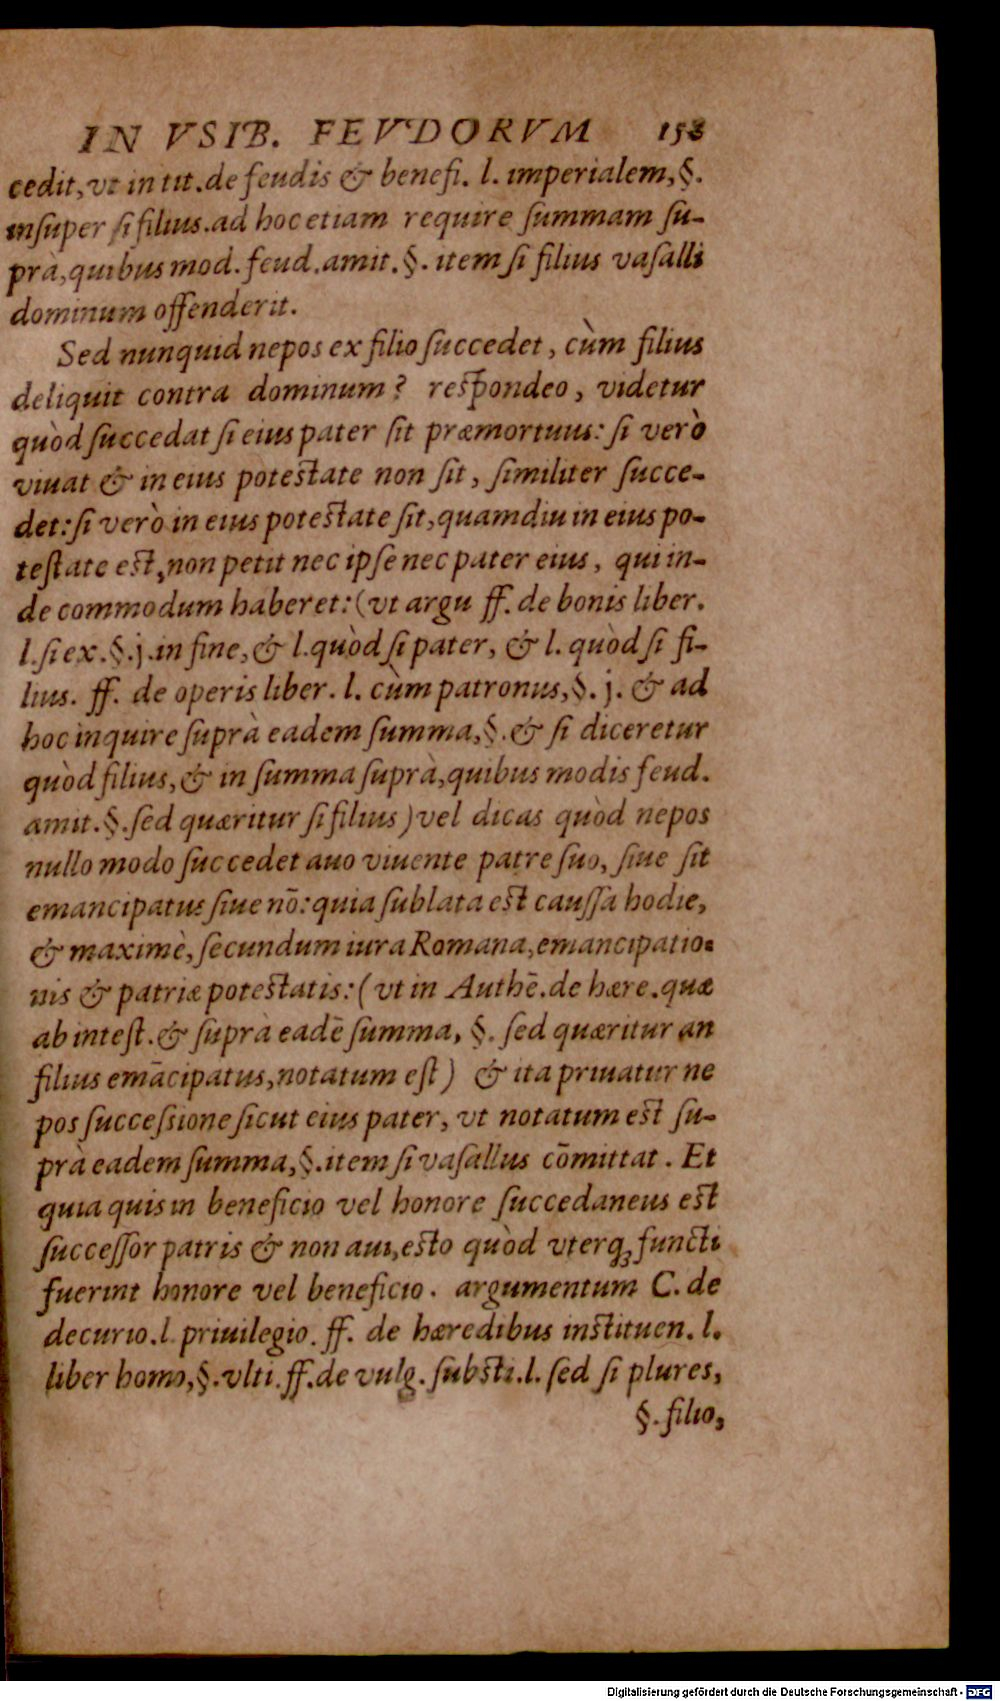 IN VSIB. FEVDORVM 158
cedit, vt in tit. de feudis & benefi. l. imperialem, §.
inſuper ſi filius. ad hoc etiam require ſummam ſu-
prà, quibus mod. feud. amit. §. item ſi filius vaſalli
dominum offenderit.
Sed nunquid nepos ex filio ſuccedet, cùm filius
deliquit contra dominum? reſpondeo, videtur
quòd ſuccedat ſi eius pater ſit præmortuus: ſi verò
viuat & in eius poteſtate non ſit, ſimiliter ſucce-
det: ſi verò in eius poteſtate ſit, quamdiu in eius po-
teſtate eſt, non petit nec ipſe nec pater eius, qui in-
de commodum haberet: (vt argu ff. de bonis liber.
l. ſi ex. §. j. in fine, & l. quòd ſi pater, & l. quòd ſi fi-
lius. ff. de operis liber. l. cùm patronus, §. j. & ad
hoc inquire ſuprà eadem ſumma, §. & ſi diceretur
quòd filius, & in ſumma ſuprà, quibus modis feud.
amit. §. ſed quæritur ſi filius) vel dicas quòd nepos
nullo modo ſuccedet auo viuente patre ſuo, ſiue ſit
emancipatus ſiue nō: quia ſublata eſt cauſſa hodie,
& maximè, ſecundum iura Romana, emancipatio-
nis & patriæ poteſtatis: (vt in Authē. de hære. quæ
ab inteſt. & ſuprà eadē ſumma, §. ſed quæritur an
filius emācipatus, notatum eſt) & ita priuatur ne
pos ſucceſsione ſicut eius pater, vt notatum eſt ſu-
prà eadem ſumma, §. item ſi vaſallus cōmittat. Et
quia quis in beneficio vel honore ſuccedaneus eſt
ſucceſſor patris & non aui, eſto quòd vterq; functi
fuerint honore vel beneficio. argumentum C. de
decurio. l. priuilegio. ff. de hæredibus inſtituen. l.
liber homo, §. vlti. ff. de vulg. ſubſti. l. ſed ſi plures,
§. filio,
Digitalisierung gefördert durch die Deutsche Forschungsgemeinschaft - DFG